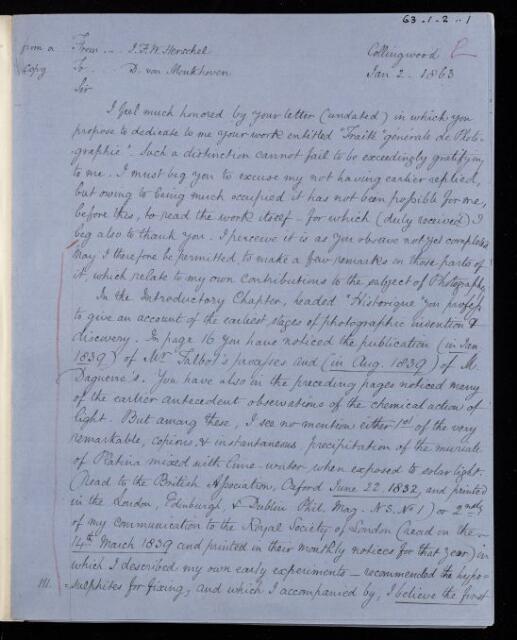 63-1-2-1
from a
Copy
From ... J.F.W. Herschel
To ... D. von Monkhoven
Sir
Collingwood
Jan 2. 1863
I feel much honored by your letter (undated) in which you
propose to dedicate to me your work entitled "Traité générale de Photo-
graphie". Such a distinction cannot fail to be exceedingly gratifying
to me. I must beg you to excuse my not having earlier replied,
but owing to being much occupied it has not been possible for me,
before this, to read the work itself - for which (duly received) I
beg also to thank you. I perceive it is as you observe not yet completed
May I therefore be permitted to make a few remarks on those parts of
it, which relate to my own contributions to the subject of Photography
In the Introductory Chapter, headed "Historique" you profess
to give an account of the earliest stages of photographic invention &
discovery. In page 16 you have noticed the publication (in Jan
1839) of Mr Talbot's processes and (in Aug. 1839) of M.
Daguerre's. You have also in the preceding pages noticed many
of the earlier antecedent observations of the chemical action of
light. But among these, I see no mention either 1st of the very
remarkable, copious, & instantaneous precipitation of the muriate
of Platina mixed with lime-water when exposed to solar light.
(Read to the British Association, Oxford June 22. 1832, and printed
in the London, Edinburgh & Dublin Phil. Mag. NS. No 1) or 2ndly
of my communication to the Royal Society of London (read on the
14th March 1839 and printed in their monthly notices for that year) in
which I described my own early experiments - recommended the hypo-
=sulphites for fixing, and which I accompanied by, I believe the first